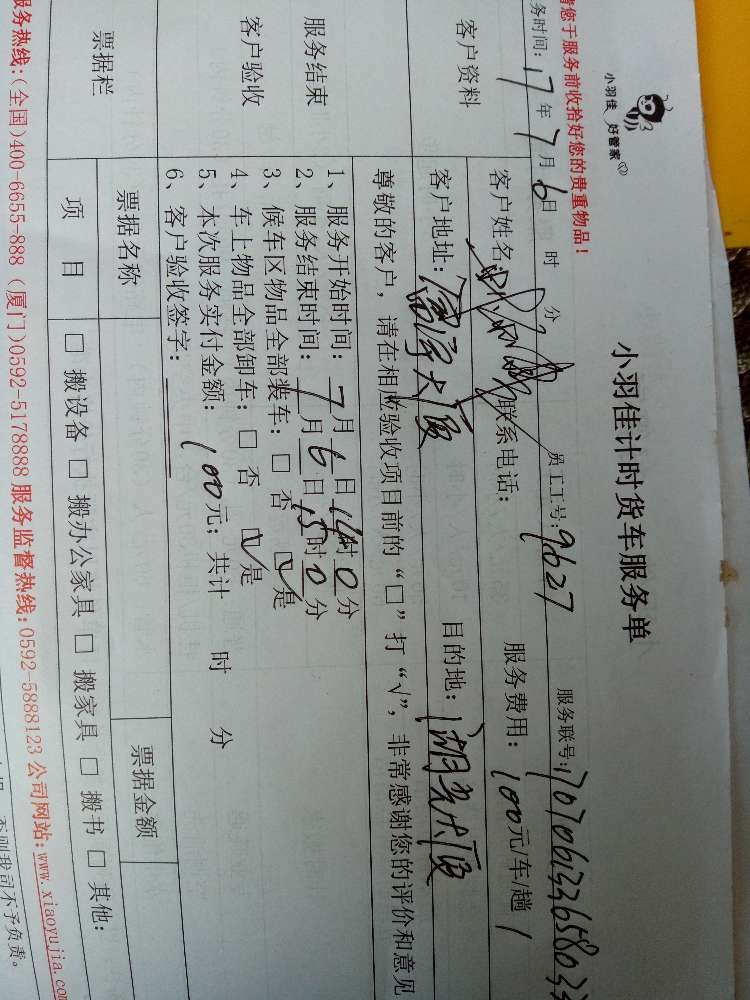 小羽佳 好管家
小羽佳计时货车服务单
请您于服务前收拾好您的贵重物品！
务时间：17年7月6日 时 分 员工工号：9627 服务联号：
客户资料 客户姓名 联系电话： 服务费用：100元/车/趟 1
客户地址： 大厦 目的地：湖光大厦
服务结束
客户验收
尊敬的客户，请在相应验收项目前的“□”打“√”，非常感谢您的评价和意见
1、服务开始时间：7月6日14时0分
2、服务结束时间：7月6日15时0分
3、候车区物品全部装车：□ 否 ☑是
4、车上物品全部卸车：□ 否 ☑是
5、本次服务实付金额：100元；共计 时 分
6、客户验收签字：
票据栏 票据名称 票据金额
项 目 □ 搬设备 □ 搬办公家具 □ 搬家具 □ 搬书 □ 其他：
服务热线：(全国)400-6655-888 (厦门)0592-5178888 服务监督热线：0592-5888123 公司网站：www.xiaoyujia.co
否则我司不予负责。